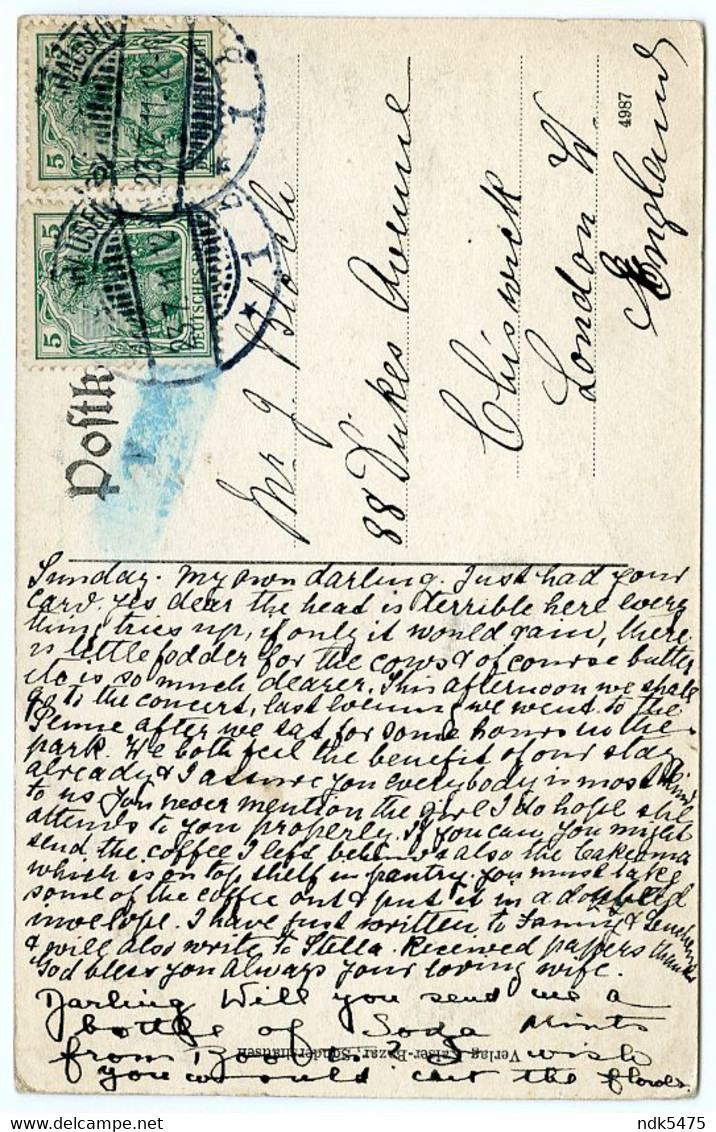 5
5
5
5
DEUTSCHES REICH
23.7.11.12-1N
Postk
Mr J. Bloch
88 Dukes Avenue
Chiswick
London W.
England
4987
Sunday. My own darling. Just had your
card. Yes dear the heat is terrible here every
thing dries up, if only it would rain, there
is little fodder for the cows & of course butter
etc is so much dearer. This afternoon we shall
go to the concert, last evening we went to the
after we sat for some hours in the
park. We both feel the benefit of our stay
already & I assure you everybody is most kind
to us. You never mention the girl I do hope she
attends to you properly. If you can, you might
send the coffee I left behind also the Cakeoma
which is on top shelf in pantry. You must take
some of the coffee out & put it in a
envelope. I have just written to Fanny & Lenchen
& will also write to Stella. Received papers thanks
God bless you Always your loving wife.
Darling Will you send me a
bottle of Soda Mints
from Boots? I wish
you would cut the flowers.
Verlag Kaiser-Bazar, Sondershausen
ndk5475